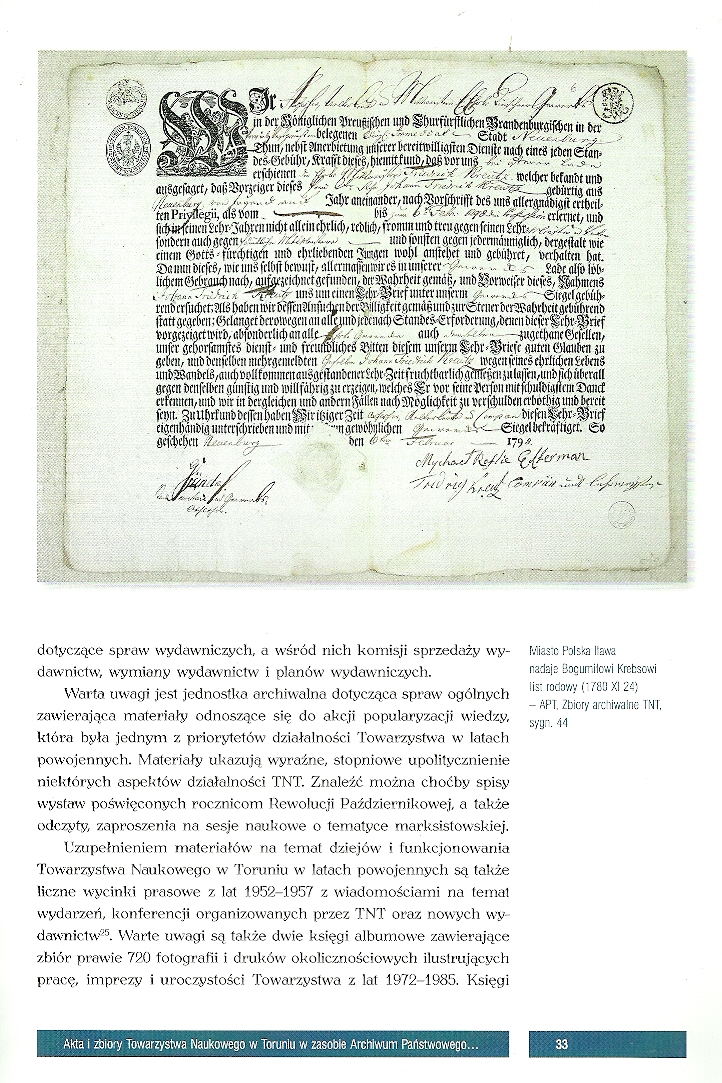 Wir
in der Königlichen Preußischen und Churfürstlichen Brandenburgischen in der
belegenen Stadt Neuenburg
Thun, nebst Anerbietung unserer bereitwilligsten Dienste nach eines jeden Stan-
des-Gebühr, Kraft dieses, hiemit kund, daß vor uns
erschienen Friedrich welcher bekandt und
ausgesaget, daß Vorzeiger dieses Johann Friedrich gebürtig aus
Neuenburg Jahr aneinander, nach Vorschrifft des uns allergnädigst ertheil-
ten Privilegii, als vom bis erlernet, und
sich in seinen Lehr-Jahren nicht allein ehrlich, redlich, fromm und treu gegen seinen Lehr-
sondern auch gegen und sonsten gegen jedermänniglich, dergestalt wie
einem Gotts-fürchtigen und ehrliebenden Jungen wohl anstehet und gebühret, verhalten hat.
Da nun dieses, wie uns selbst bewust, allermassen wir es in unserer Lade also löb-
lichem Gebrauch nach, aufgezeichnet gefunden, der Wahrheit gemäß, und Vorweiser dieses, Nahmens
Johann Friedrich uns um einen Lehr-Brief unter unserm Siegel gebüh-
rend ersuchet: Als haben wir dessen Ansuchen der Billigkeit gemäß und zur Steuer der Wahrheit gebührend
statt gegeben; Gelanget derowegen an alle und jede nach Standes-Erforderung, denen dieser Lehr-Brief
vorgezeiget wird, absonderlich an alle auch zugethane Gesellen,
unser gehorsamstes dienst- und freundliches Bitten diesem unserm Lehr-Brief guten Glauben zu
geben, und denselben mehrgemeldten Johann Friedrich wegen seines ehrlichen Lebens
und Wandels, auch vollkommen ausgestandener Lehr-Zeit fruchtbarlich geniessen zu lassen, und sich überall
gegen denselben günstig und willfährig zu erzeigen, welches Er vor seine Person mit schuldigstem Danck
erkennen, und wir in dergleichen und andern Fällen nach Möglichkeit zu verschulden erböthig und bereit
seyn. Zu Uhrkund dessen haben Wir itziger Zeit diesen Lehr-Brief
eigenhändig unterschrieben und mit gewöhnlichen Siegel bekräftiget. So
geschehen Neuenburg den Februar 179
dotyczące spraw wydawniczych, a wśród nich komisji sprzedaży wy-
dawnictw, wymiany wydawnictw i planów wydawniczych.
Warta uwagi jest jednostka archiwalna dotycząca spraw ogólnych
zawierająca materiały odnoszące się do akcji popularyzacji wiedzy,
która była jednym z priorytetów działalności Towarzystwa w latach
powojennych. Materiały ukazują wyraźne, stopniowe upolitycznienie
niektórych aspektów działalności TNT. Znaleźć można choćby spisy
wystaw poświęconych rocznicom Rewolucji Październikowej, a także
odczyty, zaproszenia na sesje naukowe o tematyce marksistowskiej.
Uzupełnieniem materiałów na temat dziejów i funkcjonowania
Towarzystwa Naukowego w Toruniu w latach powojennych są także
liczne wycinki prasowe z lat 1952–1957 z wiadomościami na temat
wydarzeń, konferencji organizowanych przez TNT oraz nowych wy-
dawnictw²⁵. Warte uwagi są także dwie księgi albumowe zawierające
zbiór prawie 720 fotografii i druków okolicznościowych ilustrujących
pracę, imprezy i uroczystości Towarzystwa z lat 1972–1985. Księgi
Miasto Polska Iława
nadaje Bogumiłowi Krebsowi
list rodowy (1780 XI 24)
– APT, Zbiory archiwalne TNT,
sygn. 44
Akta i zbiory Towarzystwa Naukowego w Toruniu w zasobie Archiwum Państwowego...
33